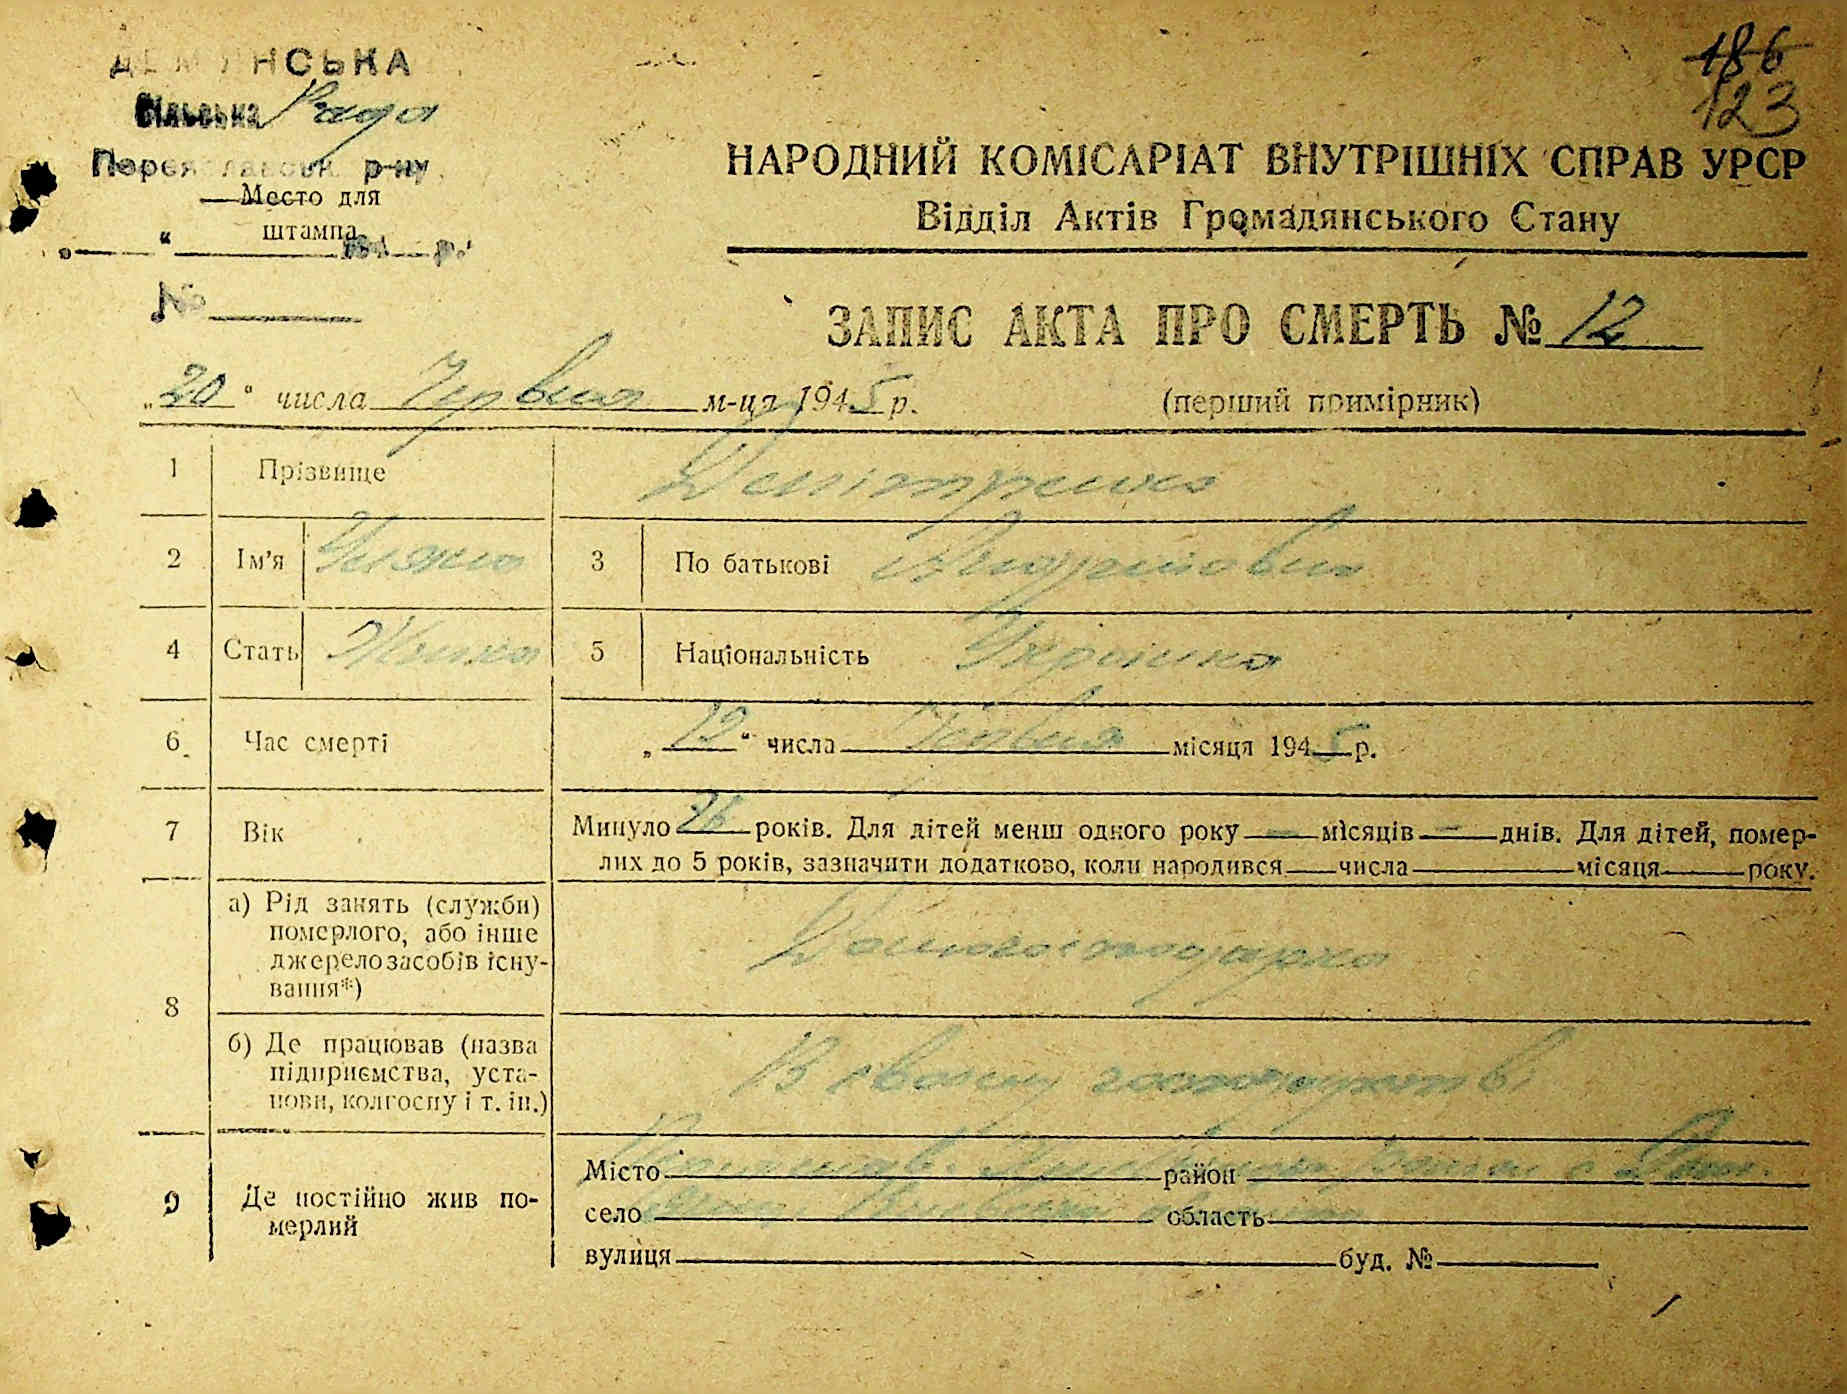 186
123
ДЕМ НСЬКА
Сільська Рада
Переяславськ р-ну
Место для
штампа
„ “ 194 р.
№
НАРОДНИЙ КОМІСАРІАТ ВНУТРІШНІХ СПРАВ УРСР
Відділ Актів Громадянського Стану
ЗАПИС АКТА ПРО СМЕРТЬ № 12
„20“ числа Червня м-ця 1945 р. (перший примірник)
1 Прізвище Дмитренко
2 Ім'я Уляна 3 По батькові Андріївна
4 Стать Жінка 5 Національність Українка
6 Час смерті „19“ числа Червня місяця 1945 р.
7 Вік Минуло 76 років. Для дітей менш одного року — місяців — днів. Для дітей, помер-
лих до 5 років, зазначити додатково, коли народився числа місяця року.
8 а) Рід занять (служби)
померлого, або інше
джерело засобів існу-
вання*)
Домогосподарка
б) Де працював (назва
підприємства, уста-
нови, колгоспу і т. ін.)
В своєму господарстві
9 Де постійно жив по-
мерлий
Місто район с
село область
вулиця буд. №